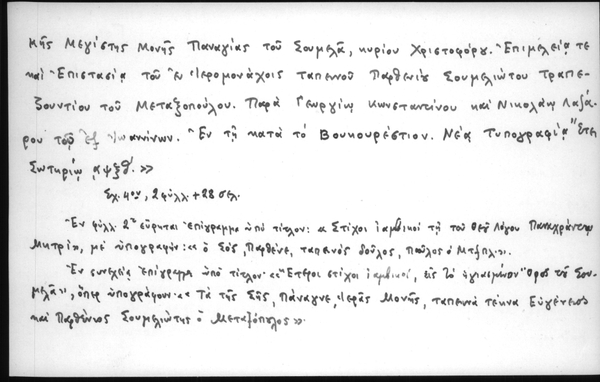 κῆς Μεγίστης Μονῆς Παναγίας τοῦ Σουμελᾶ, κυρίου Χριστοφόρου. Ἐπιμελείᾳ τε
καὶ Ἐπιστασίᾳ τοῦ ἐν Ἱερομονάχοις ταπεινοῦ Παρθενίου Σουμελιώτου Τραπε-
ζουντίου τοῦ Μεταξοπούλου. Παρὰ Γεωργίῳ Κωνσταντίνου καὶ Νικολάῳ Λαζά-
ρου τοῦ ἐξ Ἰωαννίνων. Ἐν τῇ κατὰ τὸ Βουκουρέστιον. Νέᾳ Τυπογραφίᾳ Ἔτει
Σωτηρίῳ ᾳψξθ΄. »
Σχ. 4ον, 2 φύλλ. + 28 σελ.
Ἐν φύλλ. 2ᾳ εὕρηται ἐπίγραμμα ὑπὸ τίτλον: « Στίχοι ἰαμβικοί τῇ τοῦ Θεοῦ Λόγου Παναχράντῳ
Μητρί», μὲ ὑπογραφὴν: « ὁ Σός, Παρθένε, ταπεινὸς δοῦλος, Παῦλος ὁ
Ἐν συνεχείᾳ ἐπίγραμμα ὑπὸ τίτλον « Ἕτεροι στίχοι ἰαμβικοί, εἰς τὸ ἁγιασμένον Ὄρος τοῦ Σου-
μελᾶ», ὅπερ ὑπογράφουν « Τὰ τῆς Σῆς, Πάναγνε, Ἱερᾶς Μονῆς, ταπεινὰ τέκνα Εὐγένειος
καὶ Παρθένιος Σουμελιώτης ὁ Μεταξόπουλος ».